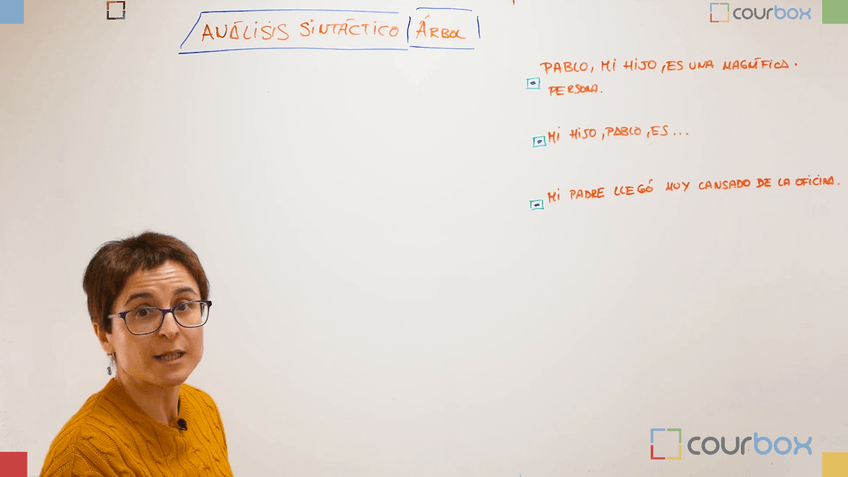 ANÁLISIS SINTÁCTICO ÁRBOL
courbox
PABLO, MI HIJO, ES UNA MAGNÍFICA.
PERSONA.
MI HIJO, PABLO, ES...
MI PADRE LLEGÓ MUY CANSADO DE LA OFICINA.
courbox